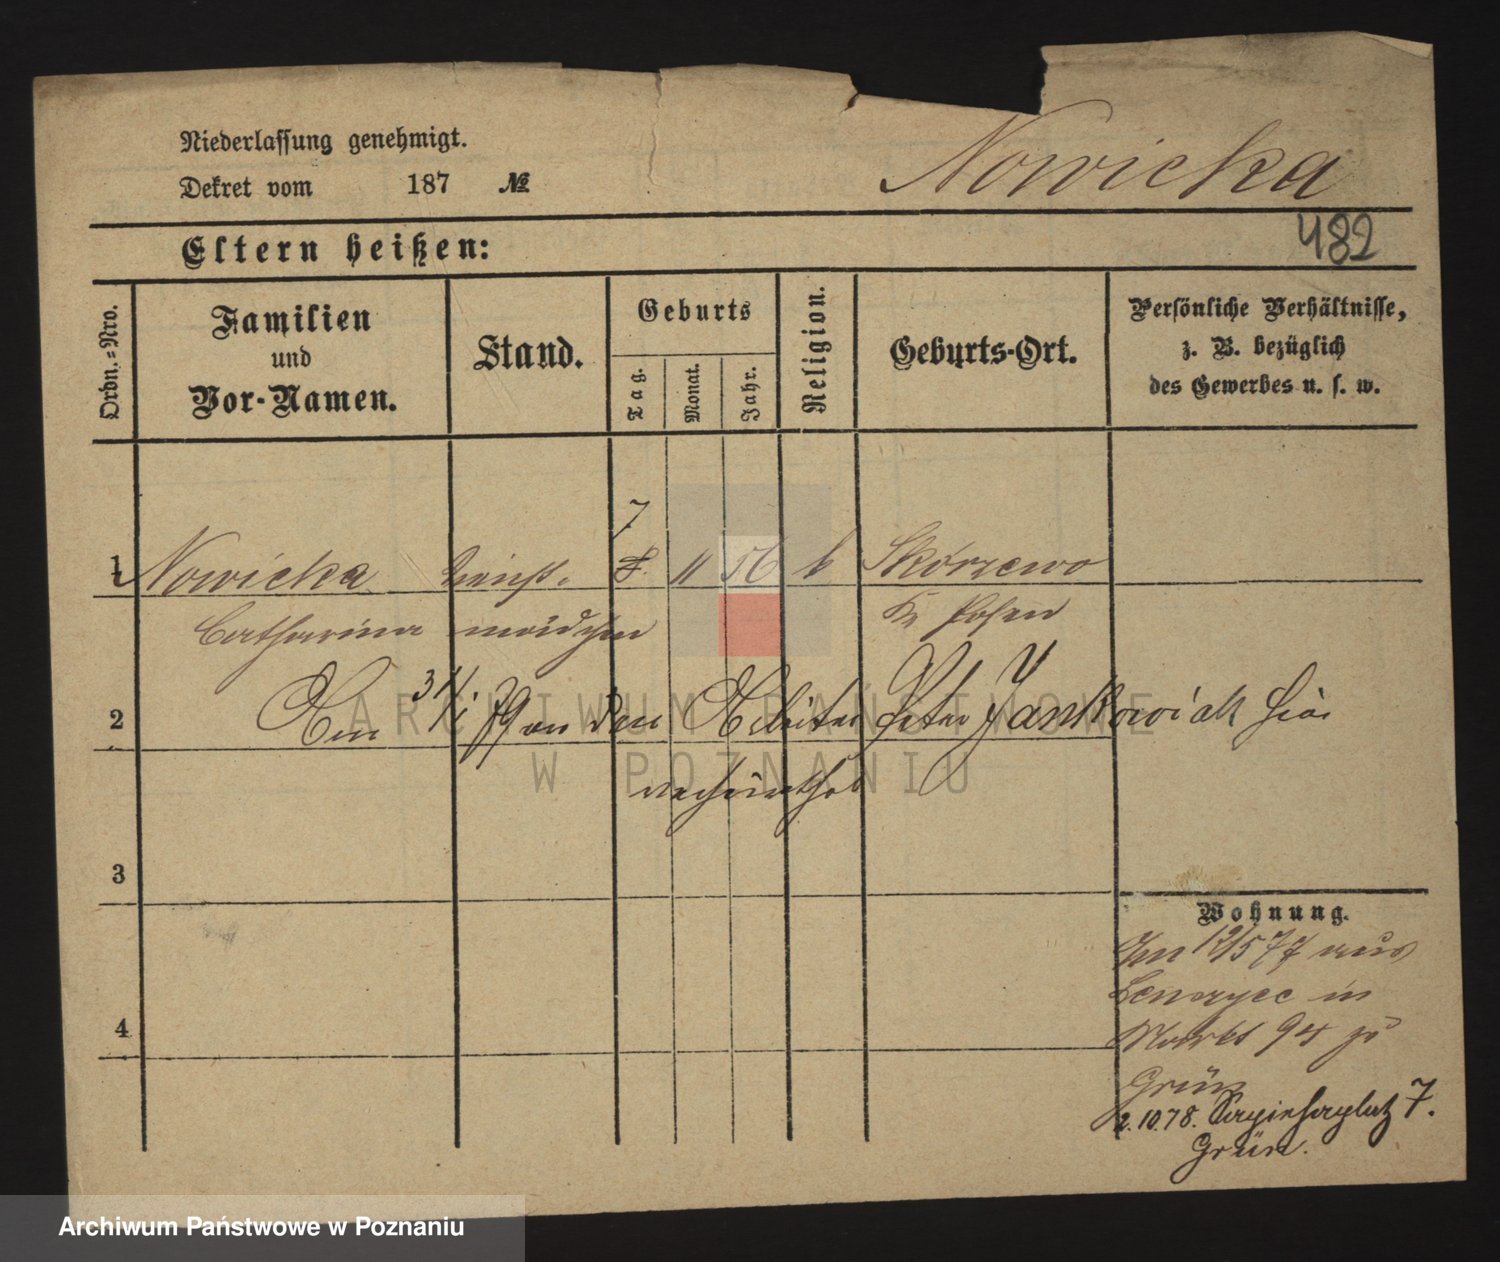 Niederlassung genehmigt.
Dekret vom 187 №
Nowicka
482
Eltern heißen:
Ordn.-Nro.
Familien
und
Vor-Namen.
Stand.
Geburts
Tag.
Monat.
Jahr.
Religion.
Geburts-Ort.
Persönliche Verhältnisse,
z. B. bezüglich
des Gewerbes u. s. w.
7
1 Nowicka 11 56 k Skórzewo
Catharina mädchen Kr Posen
2 Am 31/1 79 an den Arbeiter Peter Jankowiak hier
verheirathet
3
4
Wohnung.
Am 12/5 77 aus
in
Markt 94 zu
Grün
2.10.78. Sapiehaplatz 7.
Grün.
ARCHIWUM PAŃSTWOWE
W POZNANIU
Archiwum Państwowe w Poznaniu